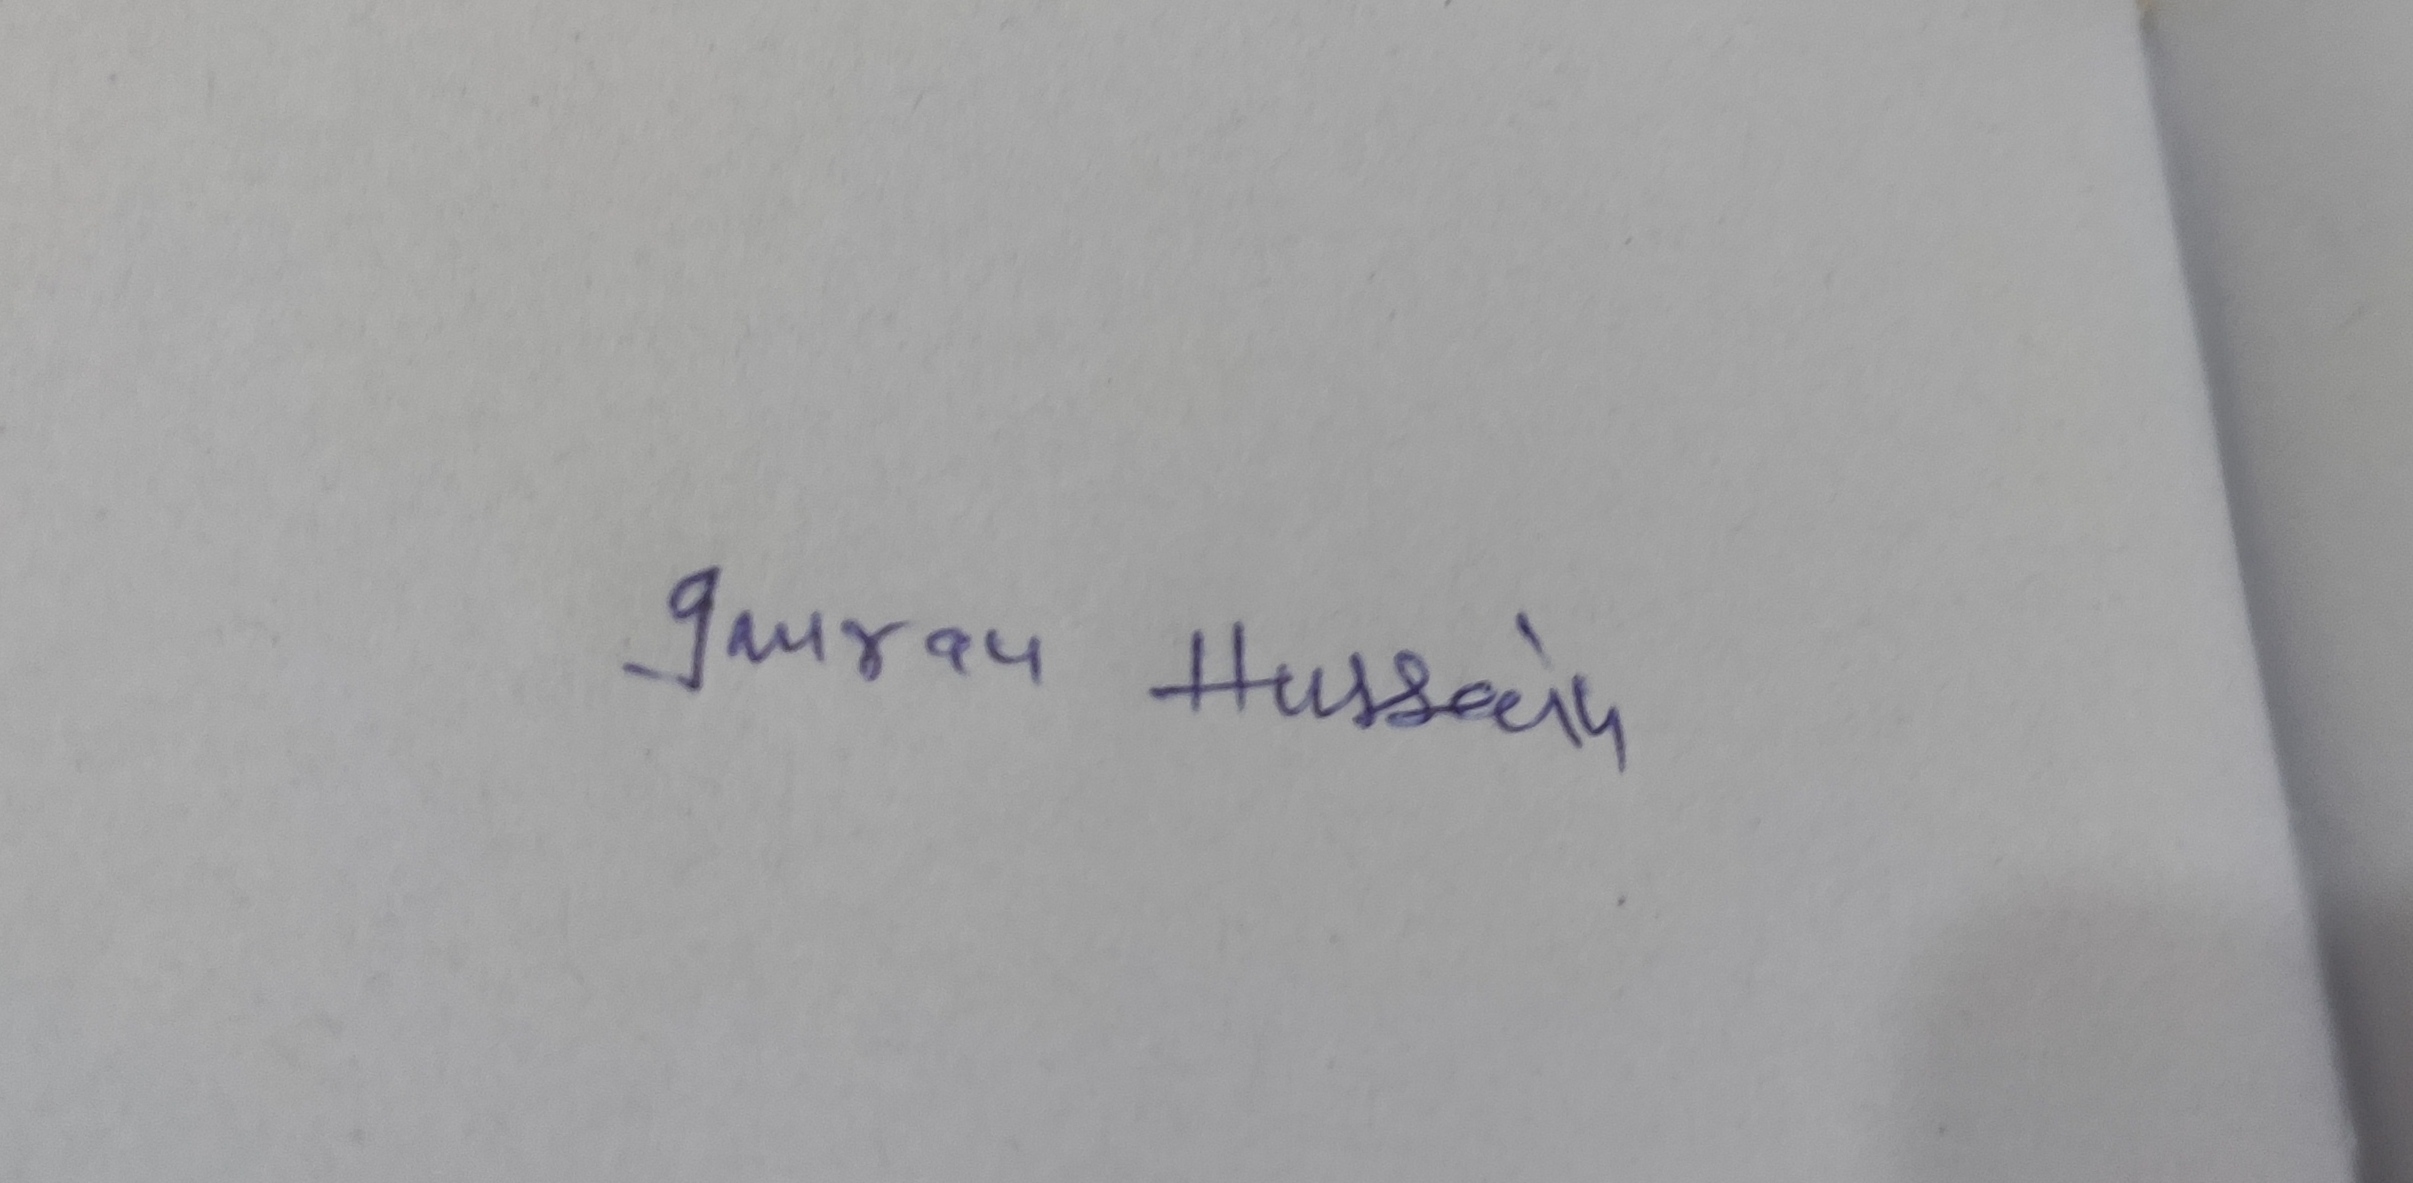 Imran Hussain